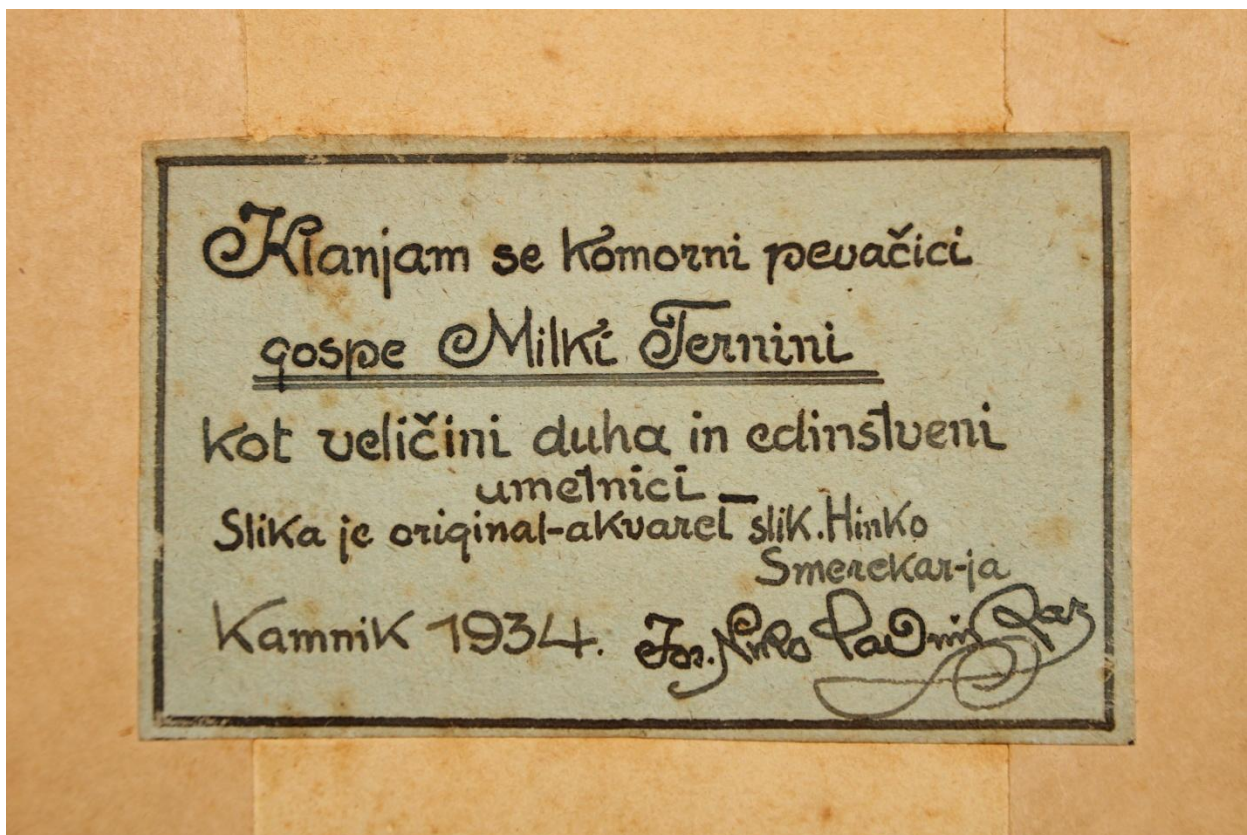 Klanjam se komorni pevačici
gospe Milki Ternini
kot veličini duha in edinstveni
umetnici —
Slika je original-akvarel slik. Hinko
Smerekar-ja
Kamnik 1934. Jos. Niko